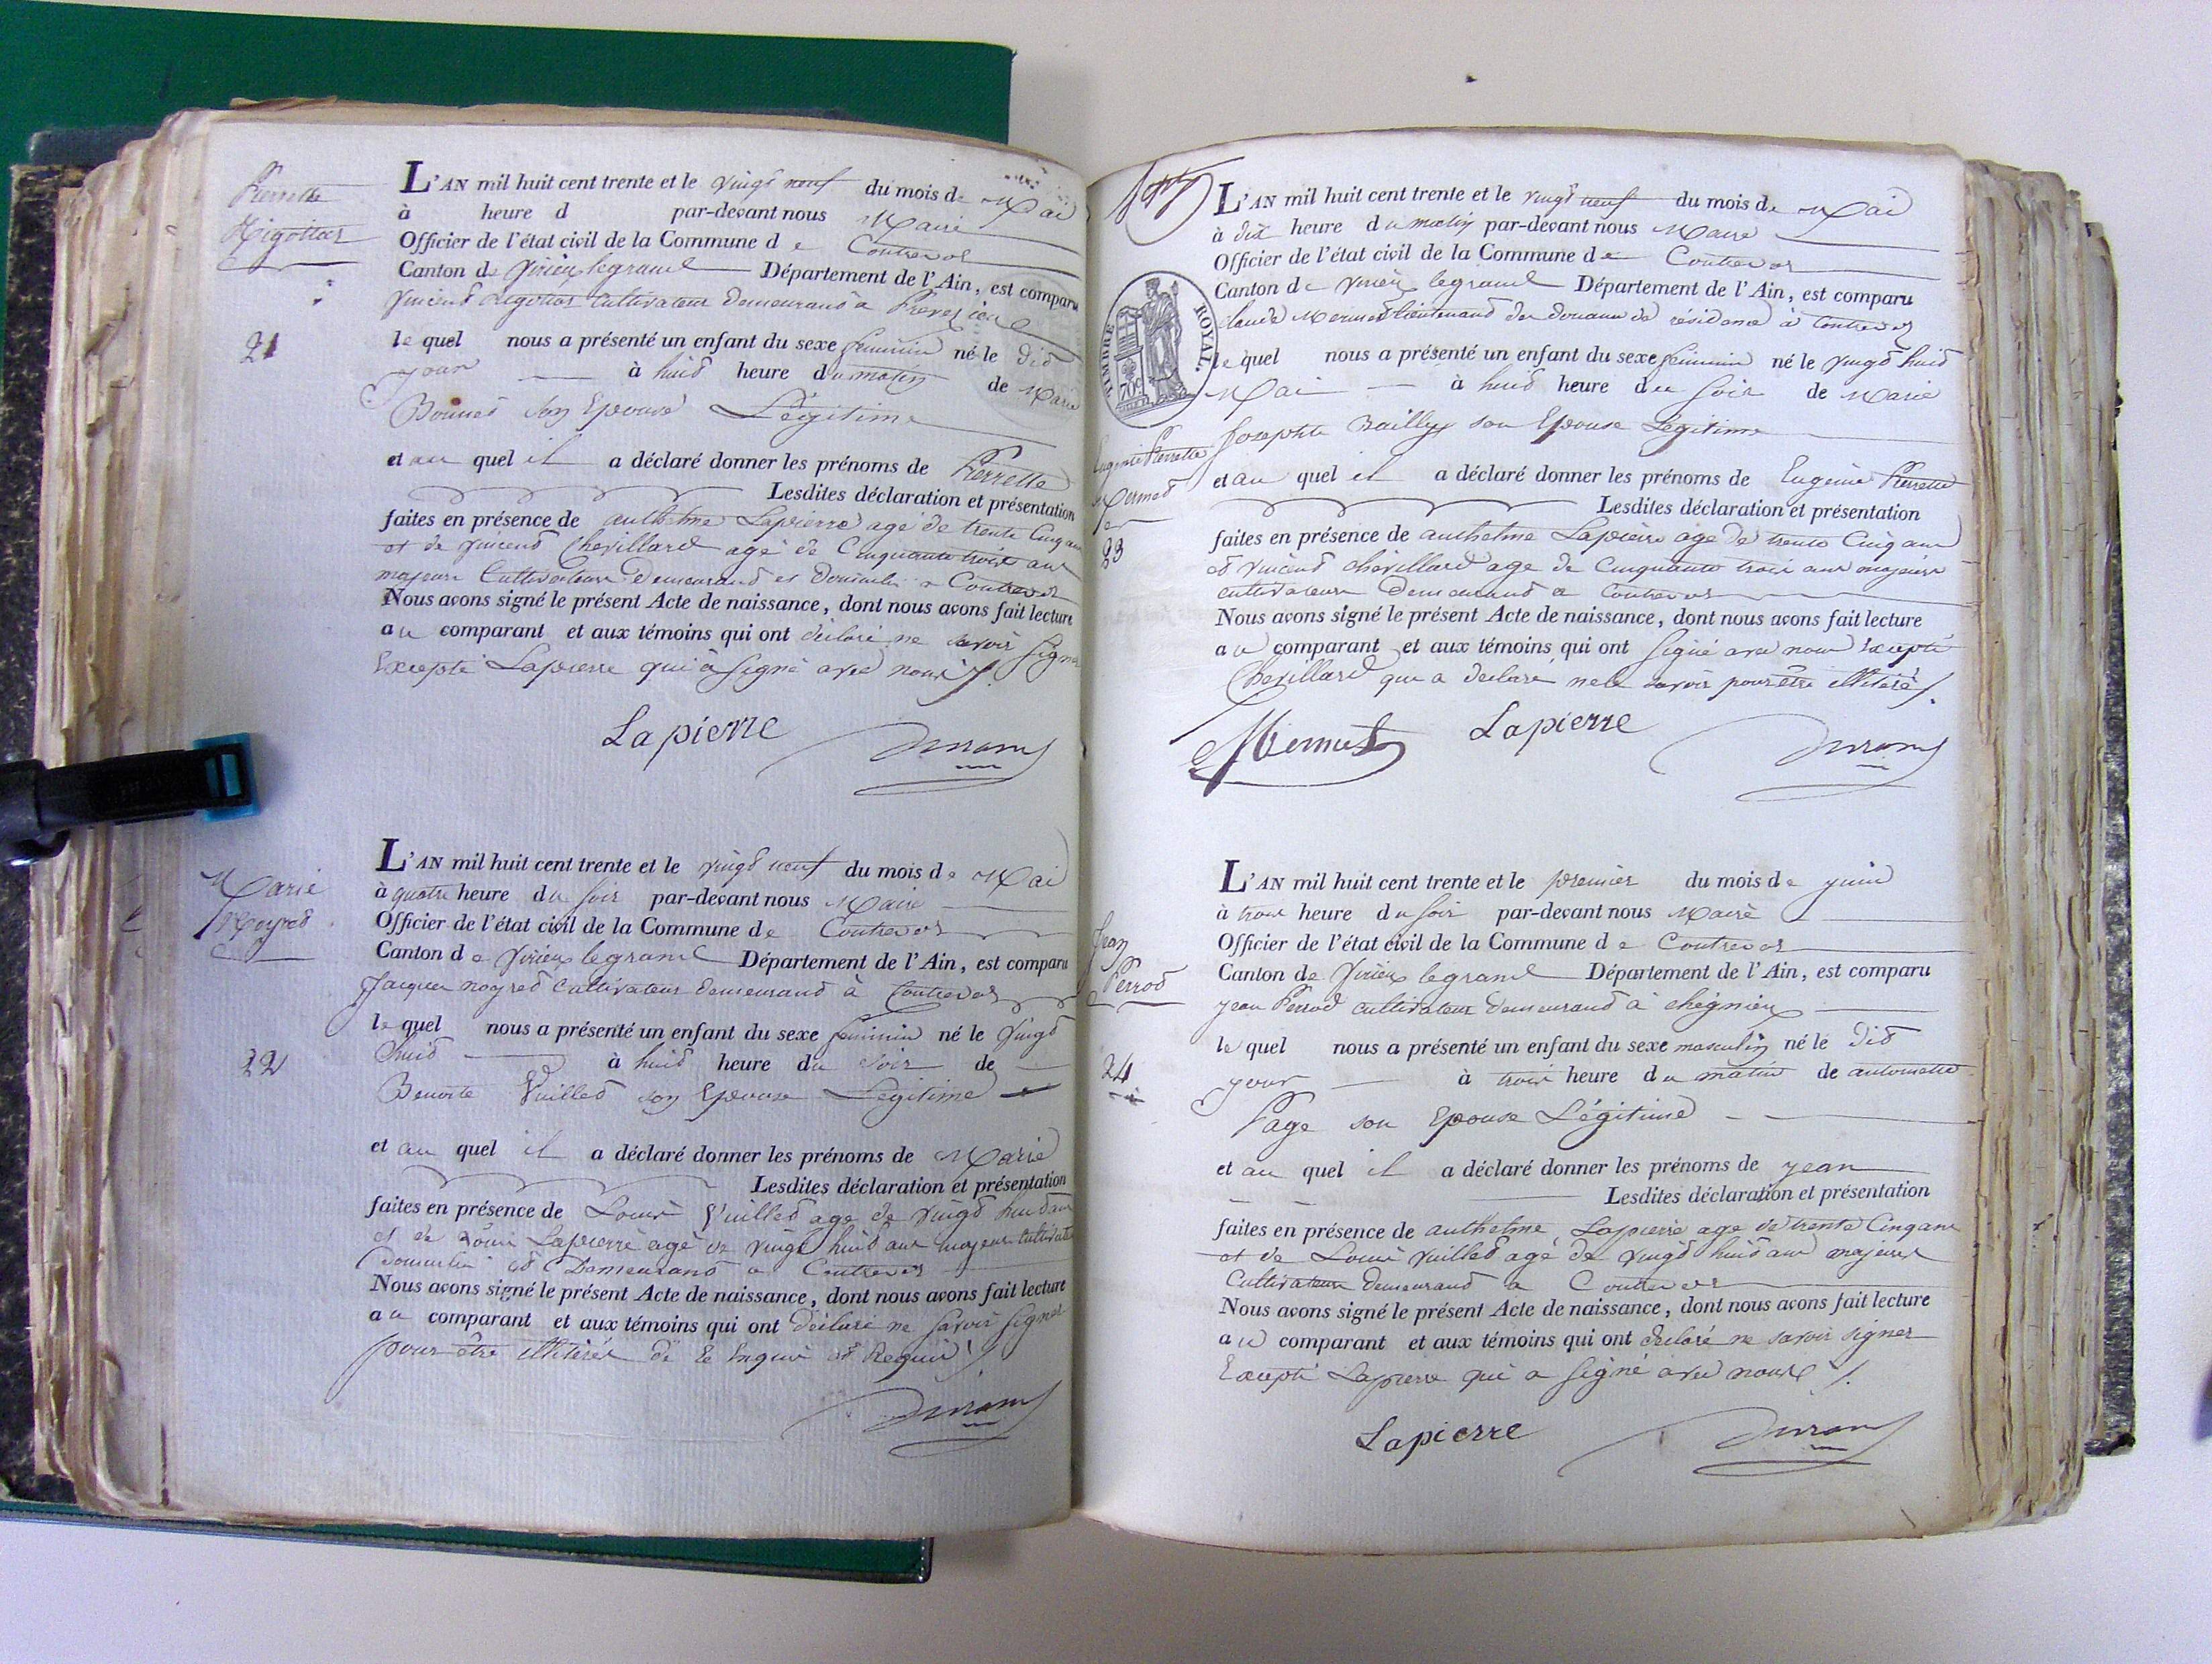 Pierrette
21
L'AN mil huit cent trente et le vingt neuf du mois de Mai
à heure d par-devant nous Maire
Officier de l'état civil de la Commune de Contrevoz
Canton de Virieu legrand Département de l'Ain, est comparu
Vincend cultivateur demeurand a
le quel nous a présenté un enfant du sexe feminin né le did
jour à huid heure du matin de Marie
son Epouse Légitime
et au quel il a déclaré donner les prénoms de Pierrette
Lesdites déclaration et présentation
faites en présence de anthelme Lapierre agé de trente Cinq ans
et de Vincend Chevillard agé de Cinquante trois ans
majeurs Cultivateurs demeurand et domicilié a Contrevoz
Nous avons signé le présent Acte de naissance, dont nous avons fait lecture
au comparant et aux témoins qui ont déclaré ne savoir signer
Excepté Lapierre qui à signé avec nous
Lapierre
Marie
22
L'AN mil huit cent trente et le vingt neuf du mois de Mai
à quatre heure du soir par-devant nous Maire
Officier de l'état civil de la Commune de Contrevoz
Canton de Virieu legrand Département de l'Ain, est comparu
Jacques moyred Cultivateur demeurand à Contrevoz
le quel nous a présenté un enfant du sexe feminin né le vingd
huid à huid heure du soir de
Benoite Vuilled son Epouse Légitime
et au quel il a déclaré donner les prénoms de Marie
Lesdites déclaration et présentation
faites en présence de Louis Vuilled age de vingd huid ans
et de Louis Lapierre agé de vingd huid ans majeurs cultivateurs
domicilié et Demeurand a Contrevoz
Nous avons signé le présent Acte de naissance, dont nous avons fait lecture
au comparant et aux témoins qui ont déclaré ne savoir signer
pour être illitérés de ce Enquis et Requis
TIMBRE ROYAL.
70c
Eugenie Pierrette
Mermed
23
L'AN mil huit cent trente et le vingt neuf du mois de Mai
à dix heure du matin par-devant nous Maire
Officier de l'état civil de la Commune de Contrevoz
Canton de Virieu legrand Département de l'Ain, est comparu
Claude Mermed lieutenand des douanes de résidence à Contrevoz
le quel nous a présenté un enfant du sexe feminin né le vingd huid
Mai à huid heure du soir de Marie
Josephte Bailly son Epouse Légitime
et au quel il a déclaré donner les prénoms de Eugenie Pierrette
Lesdites déclaration et présentation
faites en présence de anthelme Lapierre age de trente Cinq ans
et Vincend chevillard age de Cinquante trois ans majeurs
cultivateurs demeurand a Contrevoz
Nous avons signé le présent Acte de naissance, dont nous avons fait lecture
au comparant et aux témoins qui ont signé avec nous Excepté
Chevillard qui a declaré ne le savoir pour être illitéré
Mermet Lapierre
Jean
Perrod
24
L'AN mil huit cent trente et le premier du mois de juin
à trois heure du soir par-devant nous Maire
Officier de l'état civil de la Commune de Contrevoz
Canton de Virieu legrand Département de l'Ain, est comparu
jean Perrod cultivateur demeurand à chegnieu
le quel nous a présenté un enfant du sexe masculin né le did
jour à trois heure du matin de antoinette
Page son Epouse Légitime
et au quel il a déclaré donner les prénoms de jean
Lesdites déclaration et présentation
faites en présence de anthelme Lapierre age de trente Cinq ans
et de Louis Vuilled agé de vingd huid ans majeurs
Cultivateurs demeurand a Contrevoz
Nous avons signé le présent Acte de naissance, dont nous avons fait lecture
au comparant et aux témoins qui ont déclaré ne savoir signer
Excepté Lapierre qui a signé avec nous
Lapierre